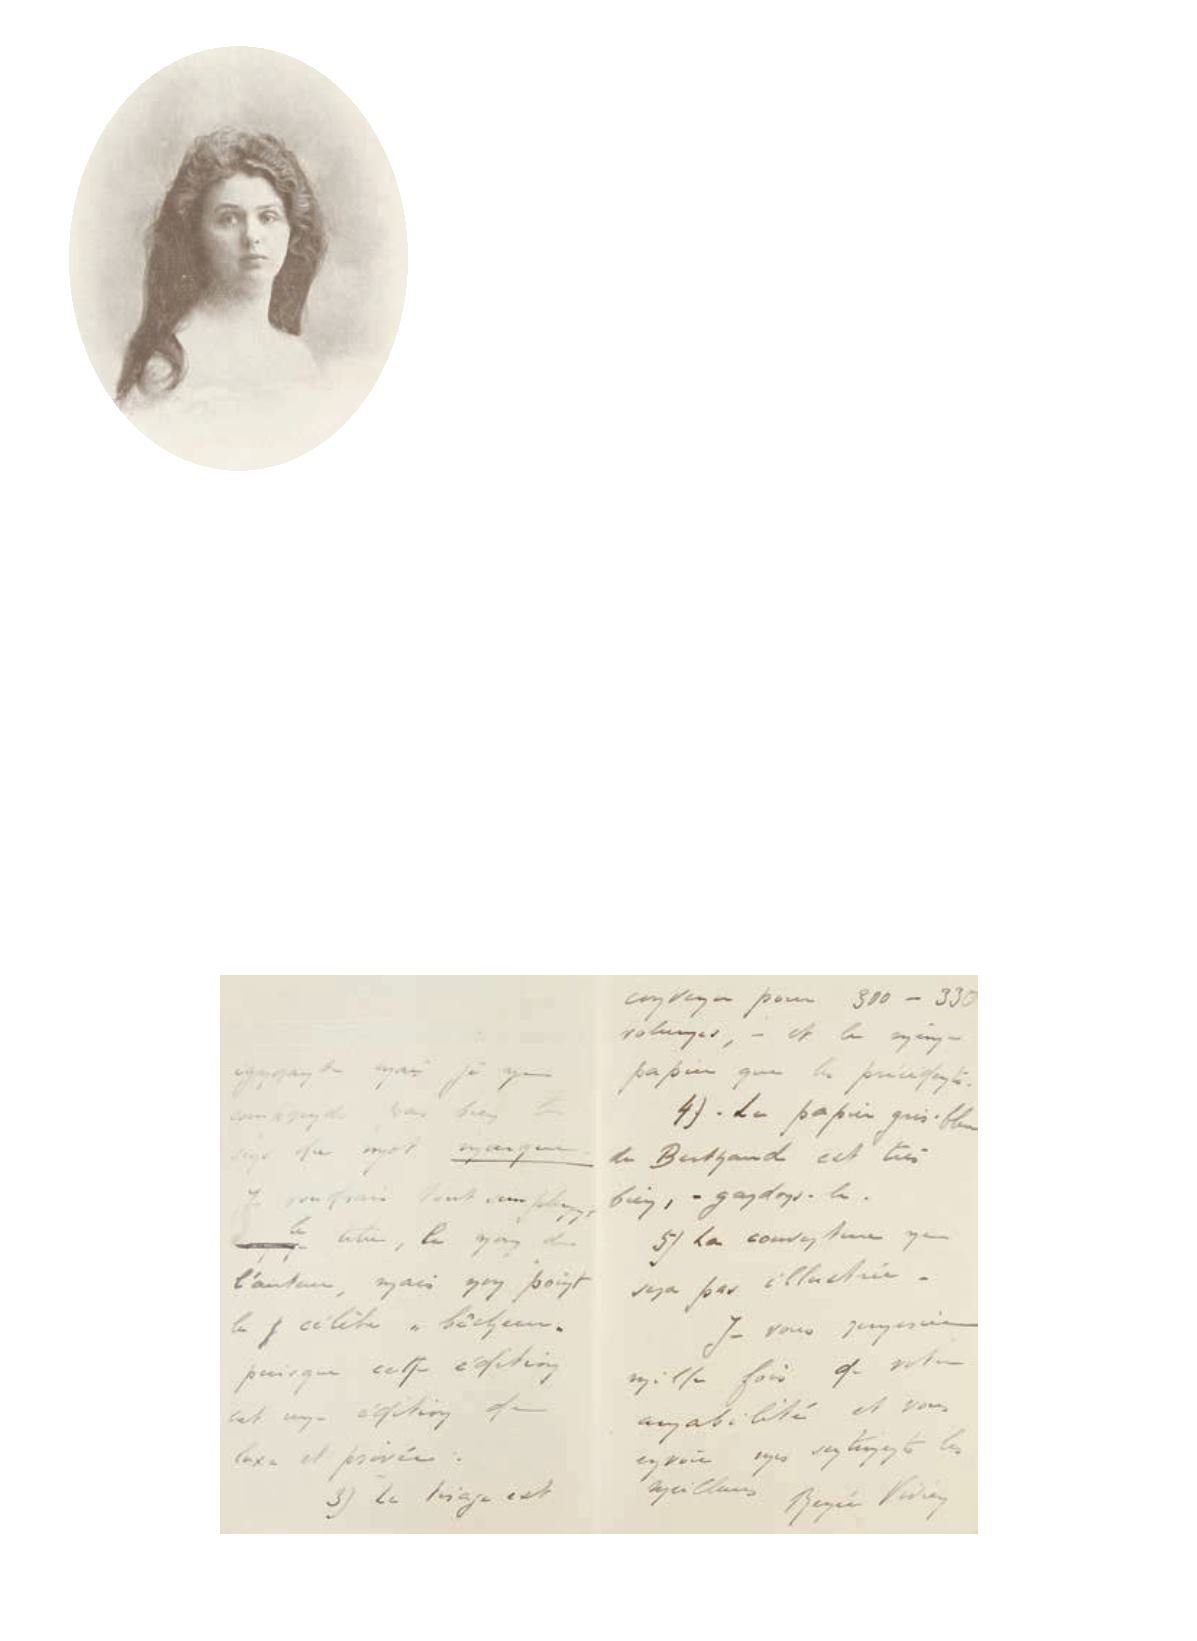 mais je ne
pas bien le
sens du mot marque.
Je voudrais tout simplement
le titre, le nom de
l'auteur, mais non point
le célèbre "bêcheur"
puisque cette édition
est une édition de
luxe et privée.
3) Le tirage est
convenu pour 300 – 330
volumes, – et le même
papier que les précédents.
4) - Le papier gris-bleu
de Bertrand est très
bien, - gardons-le.
5) La couverture ne
sera pas illustrée.
Je vous remercie
mille fois de votre
amabilité et vous
envoie mes sentiments les
meilleurs Renée Vivien